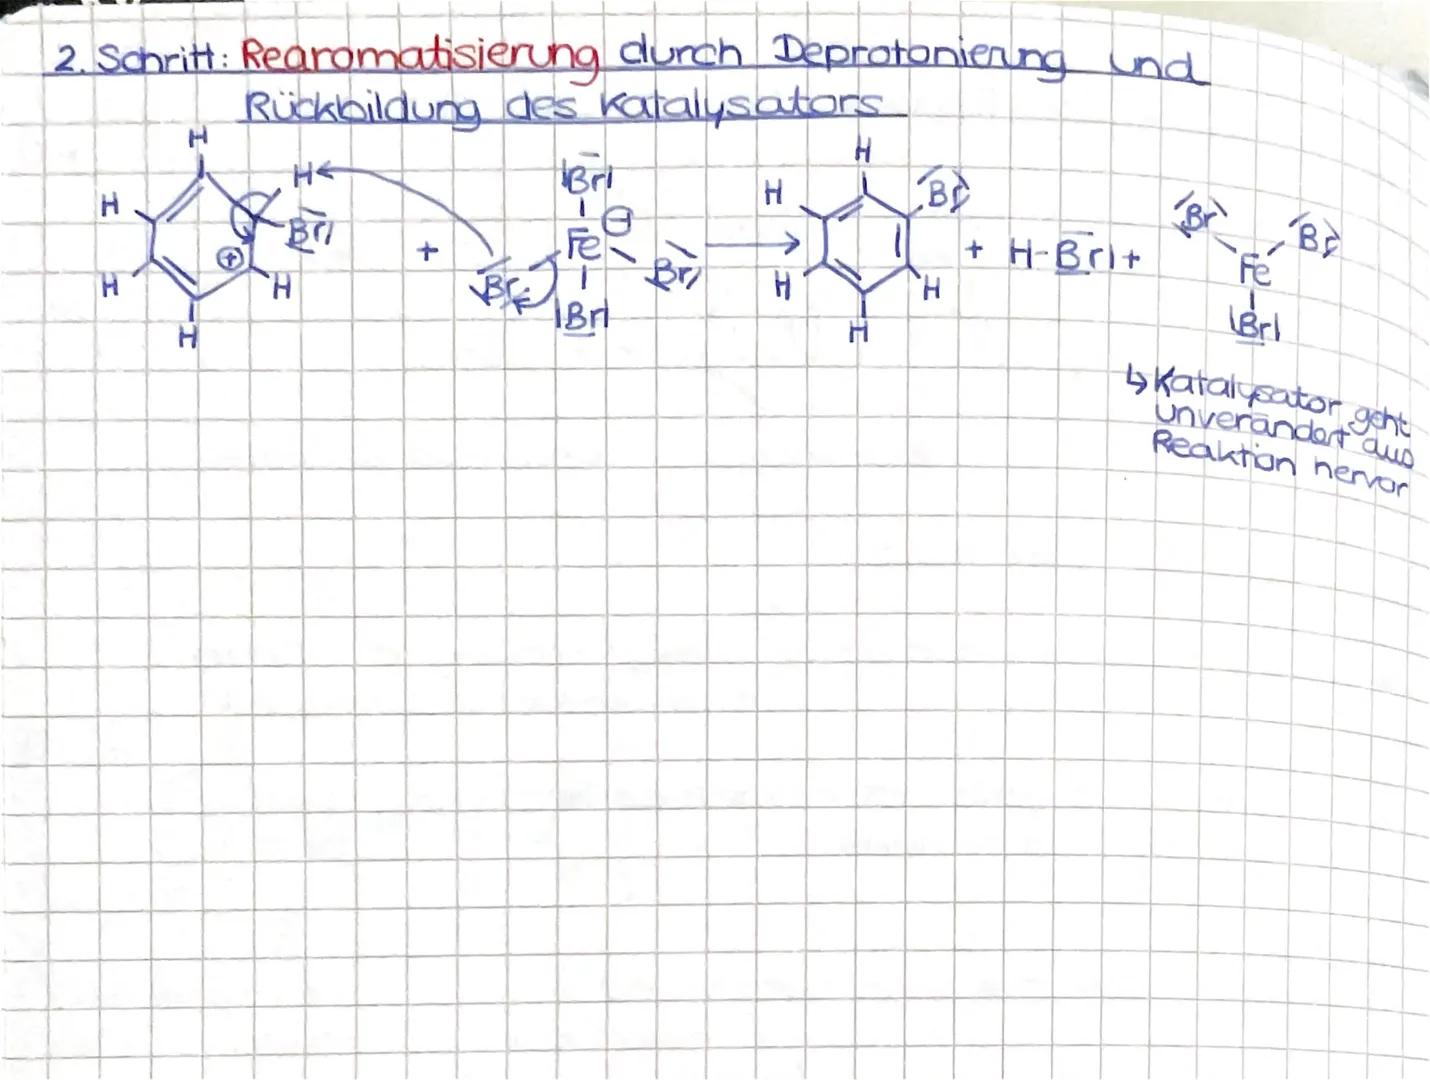 2. Schritt: Rearomatisierung durch Deprotonierung und
Rückbildung des Katalysators
H H H H H Br ⊕ + Br Br Fe ⊖ Br Br → H H H H H Br + H-Br + Br Br Fe Br
↳ Katalysator geht
unverändert aus
Reaktion hervor